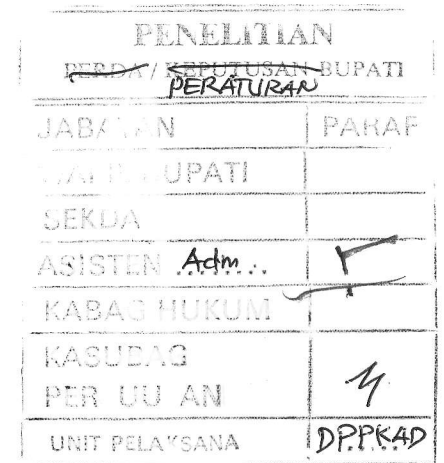 PENELITIAN
PERDA / KEPUTUSAN BUPATI
PERATURAN
JABATAN PARAF
WAKIL BUPATI
SEKDA
ASISTEN Adm.....
KABAG HUKUM
KASUBAG
PER UU AN
UNIT PELAKSANA DPPKAD